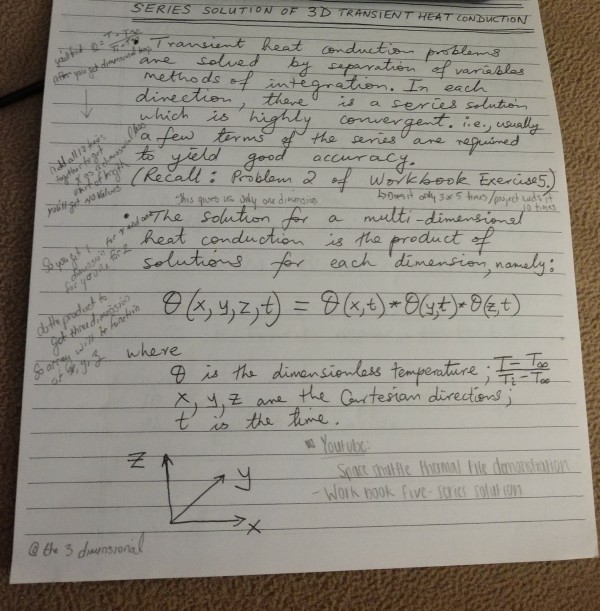 SERIES SOLUTION OF 3D TRANSIENT HEAT CONDUCTION
• Transient heat conduction problems
are solved by separation of variables
methods of integration. In each
direction, there is a series solution
which is highly convergent. i.e., usually
a few terms of the series are required
to yield good accuracy.
(Recall: Problem 2 of Workbook Exercise 5.)
*this gives us only one dimension
only 3 or 5 times/project wants it
10 times
• The solution for a multi-dimensional
heat conduction is the product of
solutions for each dimension, namely:
θ(x,y,z,t) = θ(x,t)*θ(y,t)*θ(z,t)
where
θ is the dimensionless temperature; T-T∞/Ti-T∞
x, y, z are the Cartesian directions;
t is the time.
Z
y
x
Youtube:
Space shuttle thermal tile demonstration
- Work book five-series solution
@ the 3 dimensional
after you get dimensional
add all
together to get
So you get 1
dimension for x and
for you're for z
do the product to
get three dimension
so array will be function
of x, y, z